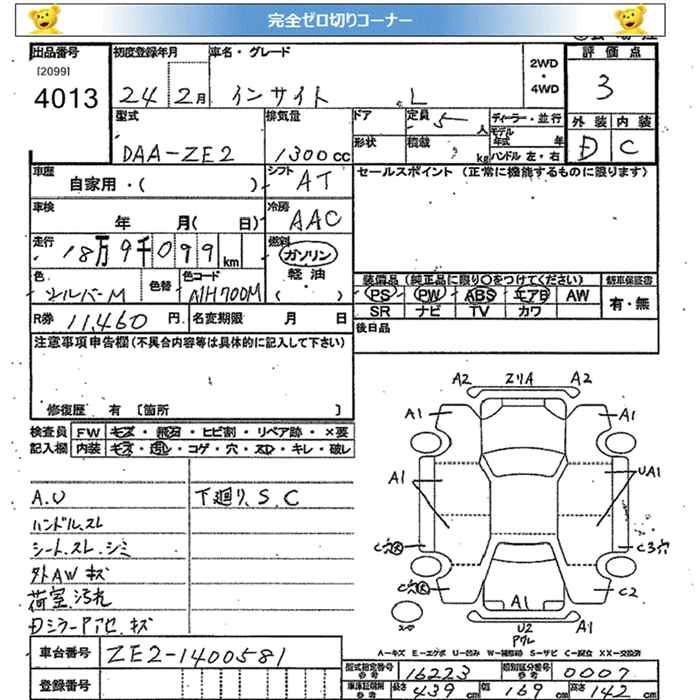 完全ゼロ切りコーナー
出品番号
[2099]
4013
初度登録年月
24 2月
車名・グレード
インサイト L
2WD
・
4WD
評価点
3
外装 内装
D C
型式
DAA-ZE2
排気量
1300cc
ドア
定員 5人
形状
積載 kg
ディーラー・並行
モデル年式 年
ハンドル 左・右
車歴
自家用・( )
シフト
AT
車検
年 月( 日)
冷房
AAC
走行
18万9千099km
燃料
ガソリン
軽油
( )
色
シルバーM
色替
色コード
NH700M
R券 11,460円
名変期限 月 日
セールスポイント (正常に機能するものに限ります)
装備品(純品品に限り○をつけてください)
新車保証書
PS PW ABS エアB AW
SR ナビ TV カワ
有・無
後日品
注意事項申告欄(不具合内容等は具体的に記入して下さい)
修復歴 有 [箇所 ]
検査員
記入欄
FW キズ・飛石・ヒビ割・リペア跡・×要
内装 キズ・汚レ・コゲ・穴・スレ・キレ・破レ
A.U
ハンドル.スレ
シート.スレ.シミ
外AW キズ
荷室.汚れ
Dミラー Pアセ.キズ
下廻り.S.C
A2 ズリA A2
A1 A1
A1 UA1
C穴 C3穴
C穴 C2
A1
U2 A1
A-キズ E-エクボ U-凹み W-補修跡 S-サビ C-腐食 XX-交換済
車台番号
ZE2-1400581
登録番号
型式指定番号 参考 16223
類別区分番号 参考 0007
車庫証明用 参考 長さ 439cm 幅 169cm 高さ 142cm